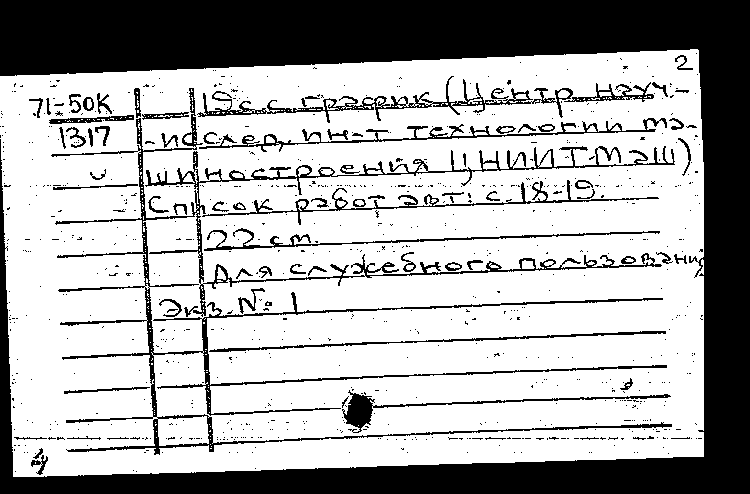 2
71-50К 19с.с график (Центр науч-
1317 -исслед, ин-т технологии ма-
шиностроения ЦНИИТМаш)
Список работ авт: с. 18-19.
22 см.
Для служебного пользования
Экз. № 1